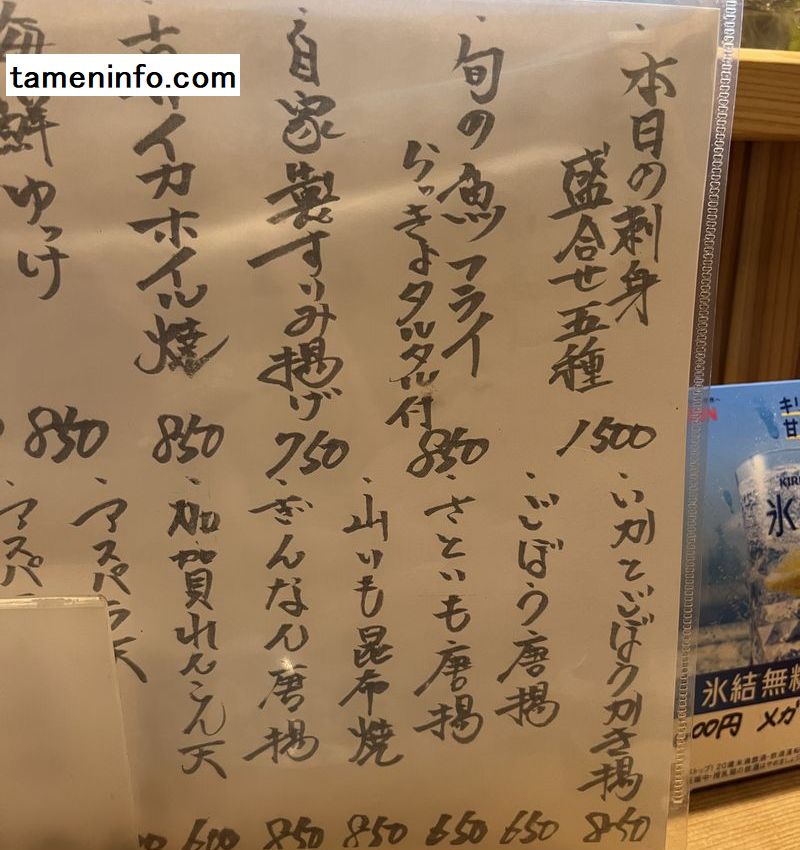 tameninfo.com
・本日の刺身
盛合せ五種
1500
・旬の魚フライ
らっきょタルタル付
850
・自家製すりみ揚げ
750
イカホイル焼
850
海鮮ゆっけ
850
・いかとごぼうかき揚
850
・ごぼう唐揚
650
・さといも唐揚
650
・山いも昆布焼
850
・ぎんなん唐揚
850
・加賀れんこん天
600
・アスパラ天
・アスパ
キリ
甘
KIR
氷
氷結無糖
00円 メガ